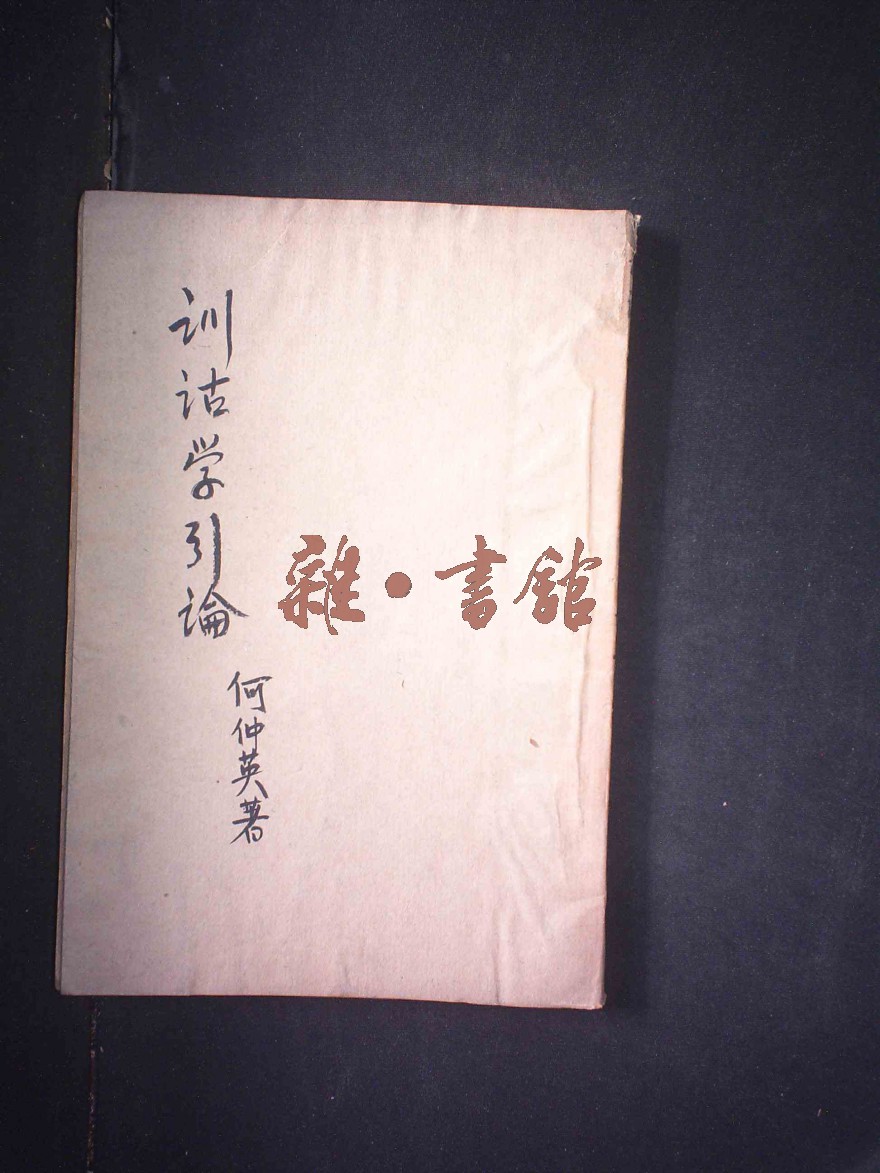 训诂学引論
何仲英著
雜·書館